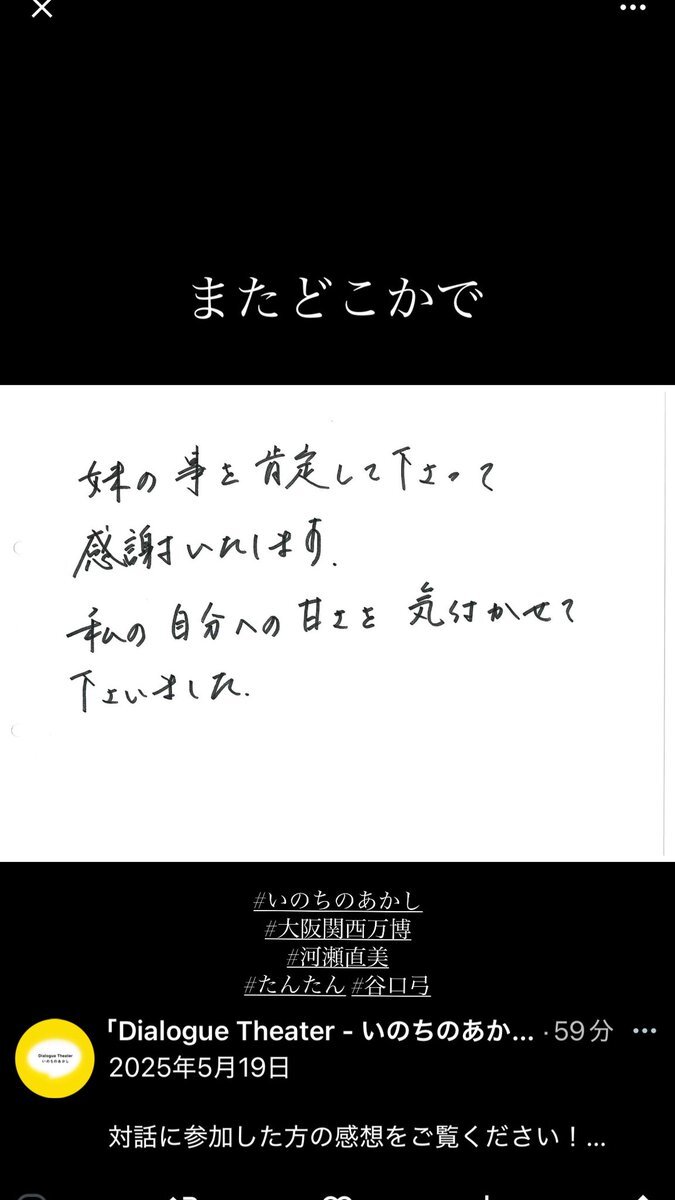 またどこかで
妹の事を肯定して下さって
感謝いたします.
私の自分への甘さを 気付かせて
下さいました.
#いのちのあかし
#大阪関西万博
#河瀨直美
#たんたん #谷口弓
Dialogue Theater
いのちのあかし
「Dialogue Theater - いのちのあか... · 59分
2025年5月19日
対話に参加した方の感想をご覧ください！...